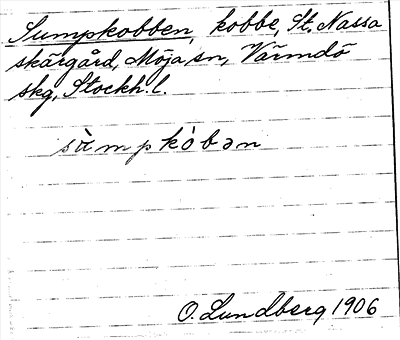 Sumpkobben, kobbe, St. Nassa
skärgård, Möja sn, Värmdö
skg, Stockh. l.
sùmpkòbən
O. Lundberg 1906